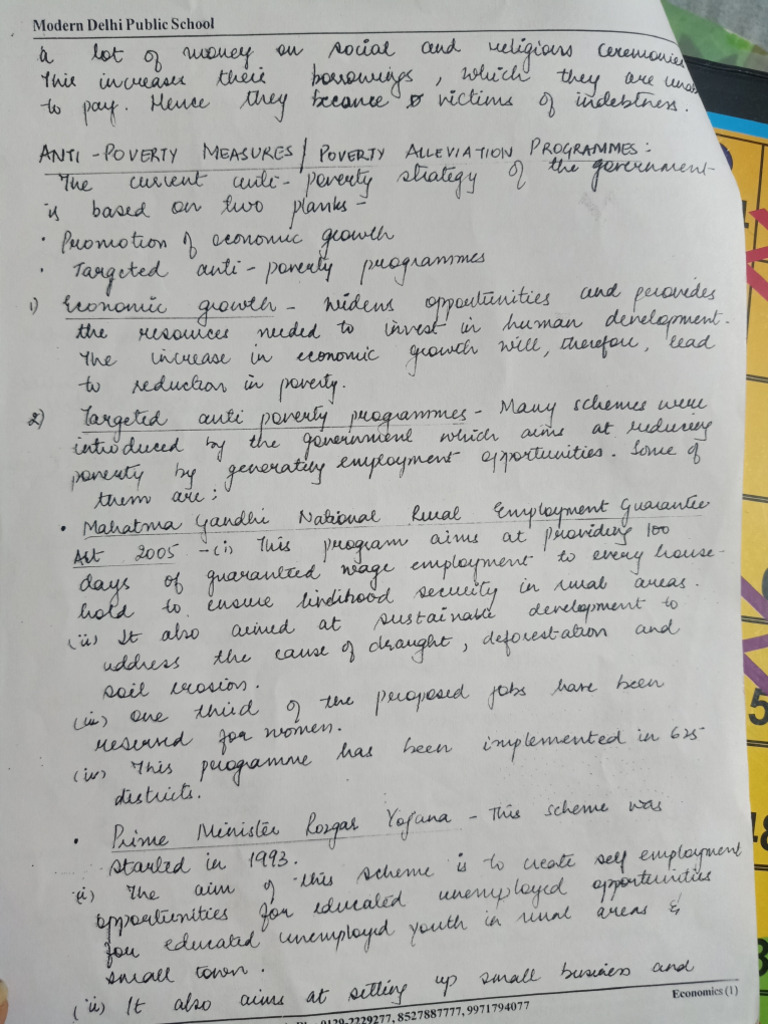 Modern Delhi Public School
a lot of money on social and religious ceremonies
This increases their borrowings, which they are unab
to pay. Hence they become victims of indebtness.
ANTI-POVERTY MEASURES/ POVERTY ALLEVIATION PROGRAMMES:
The current anti-poverty strategy of the government
is based on two planks-
• Promotion of economic growth
• Targeted anti-poverty programmes
1) Economic growth - widens opportunities and provides
the resources needed to invest in human development.
The increase in economic growth will, therefore, lead
to reduction in poverty.
2) Targeted anti poverty programmes - Many schemes were
introduced by the government which aims at reducing
poverty by generating employment opportunities. Some of
them are:
• Mahatma Gandhi National Rural Employment Guarantee
Act 2005 - (i) This program aims at providing 100
days of guaranteed wage employment to every house-
hold to ensure livelihood security in rural areas.
(ii) It also aimed at sustainable development to
address the cause of draught, deforestation and
soil erosion.
(iii) one third of the proposed jobs have been
reserved for women.
(iv) This programme has been implemented in 625
districts.
• Prime Minister Rozgar Yojana - This scheme was
started in 1993.
(i) The aim of this scheme is to create self employment
opportunities for educated unemployed opportunities
for educated unemployed youth in rural areas &
small town.
(ii) It also aims at setting up small business and
Economics (1)
0129-2229277, 8527887777, 9971794077